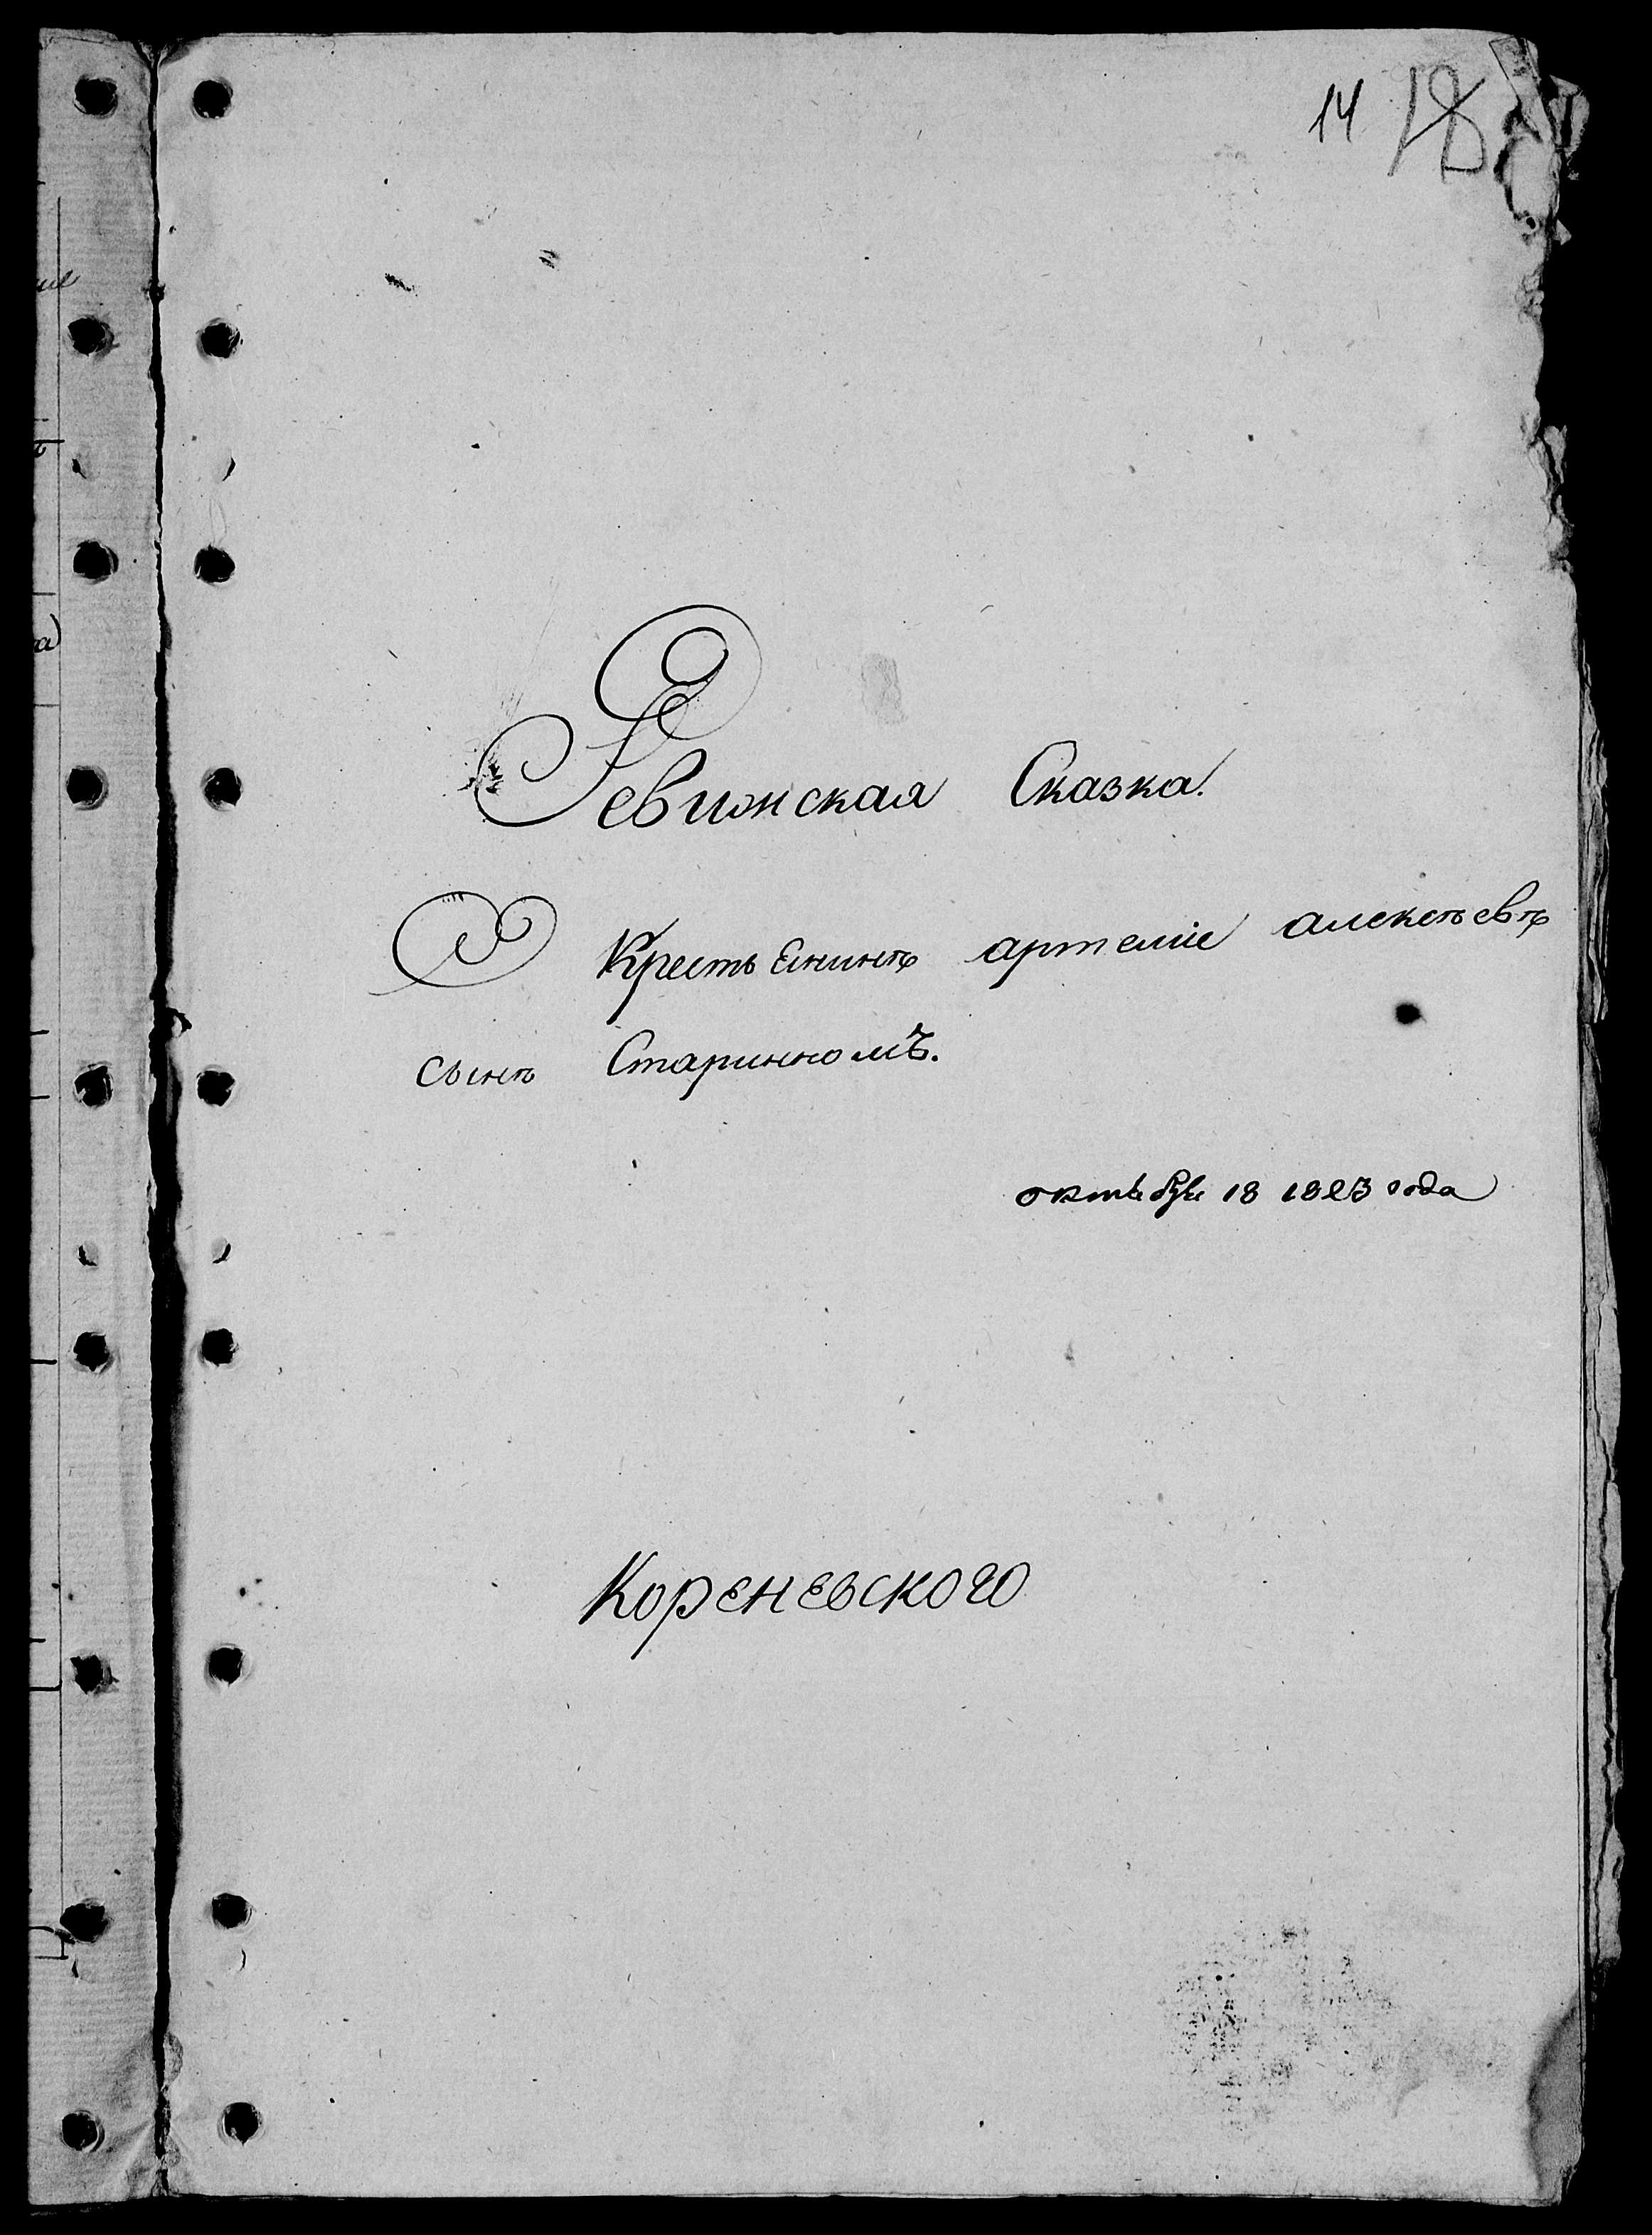 14 18
Ревижская Сказка.
О Крестьенинъ артеміе алексъевъ
сынъ Старинномъ.
октебре 18 1823 года
Кореневского